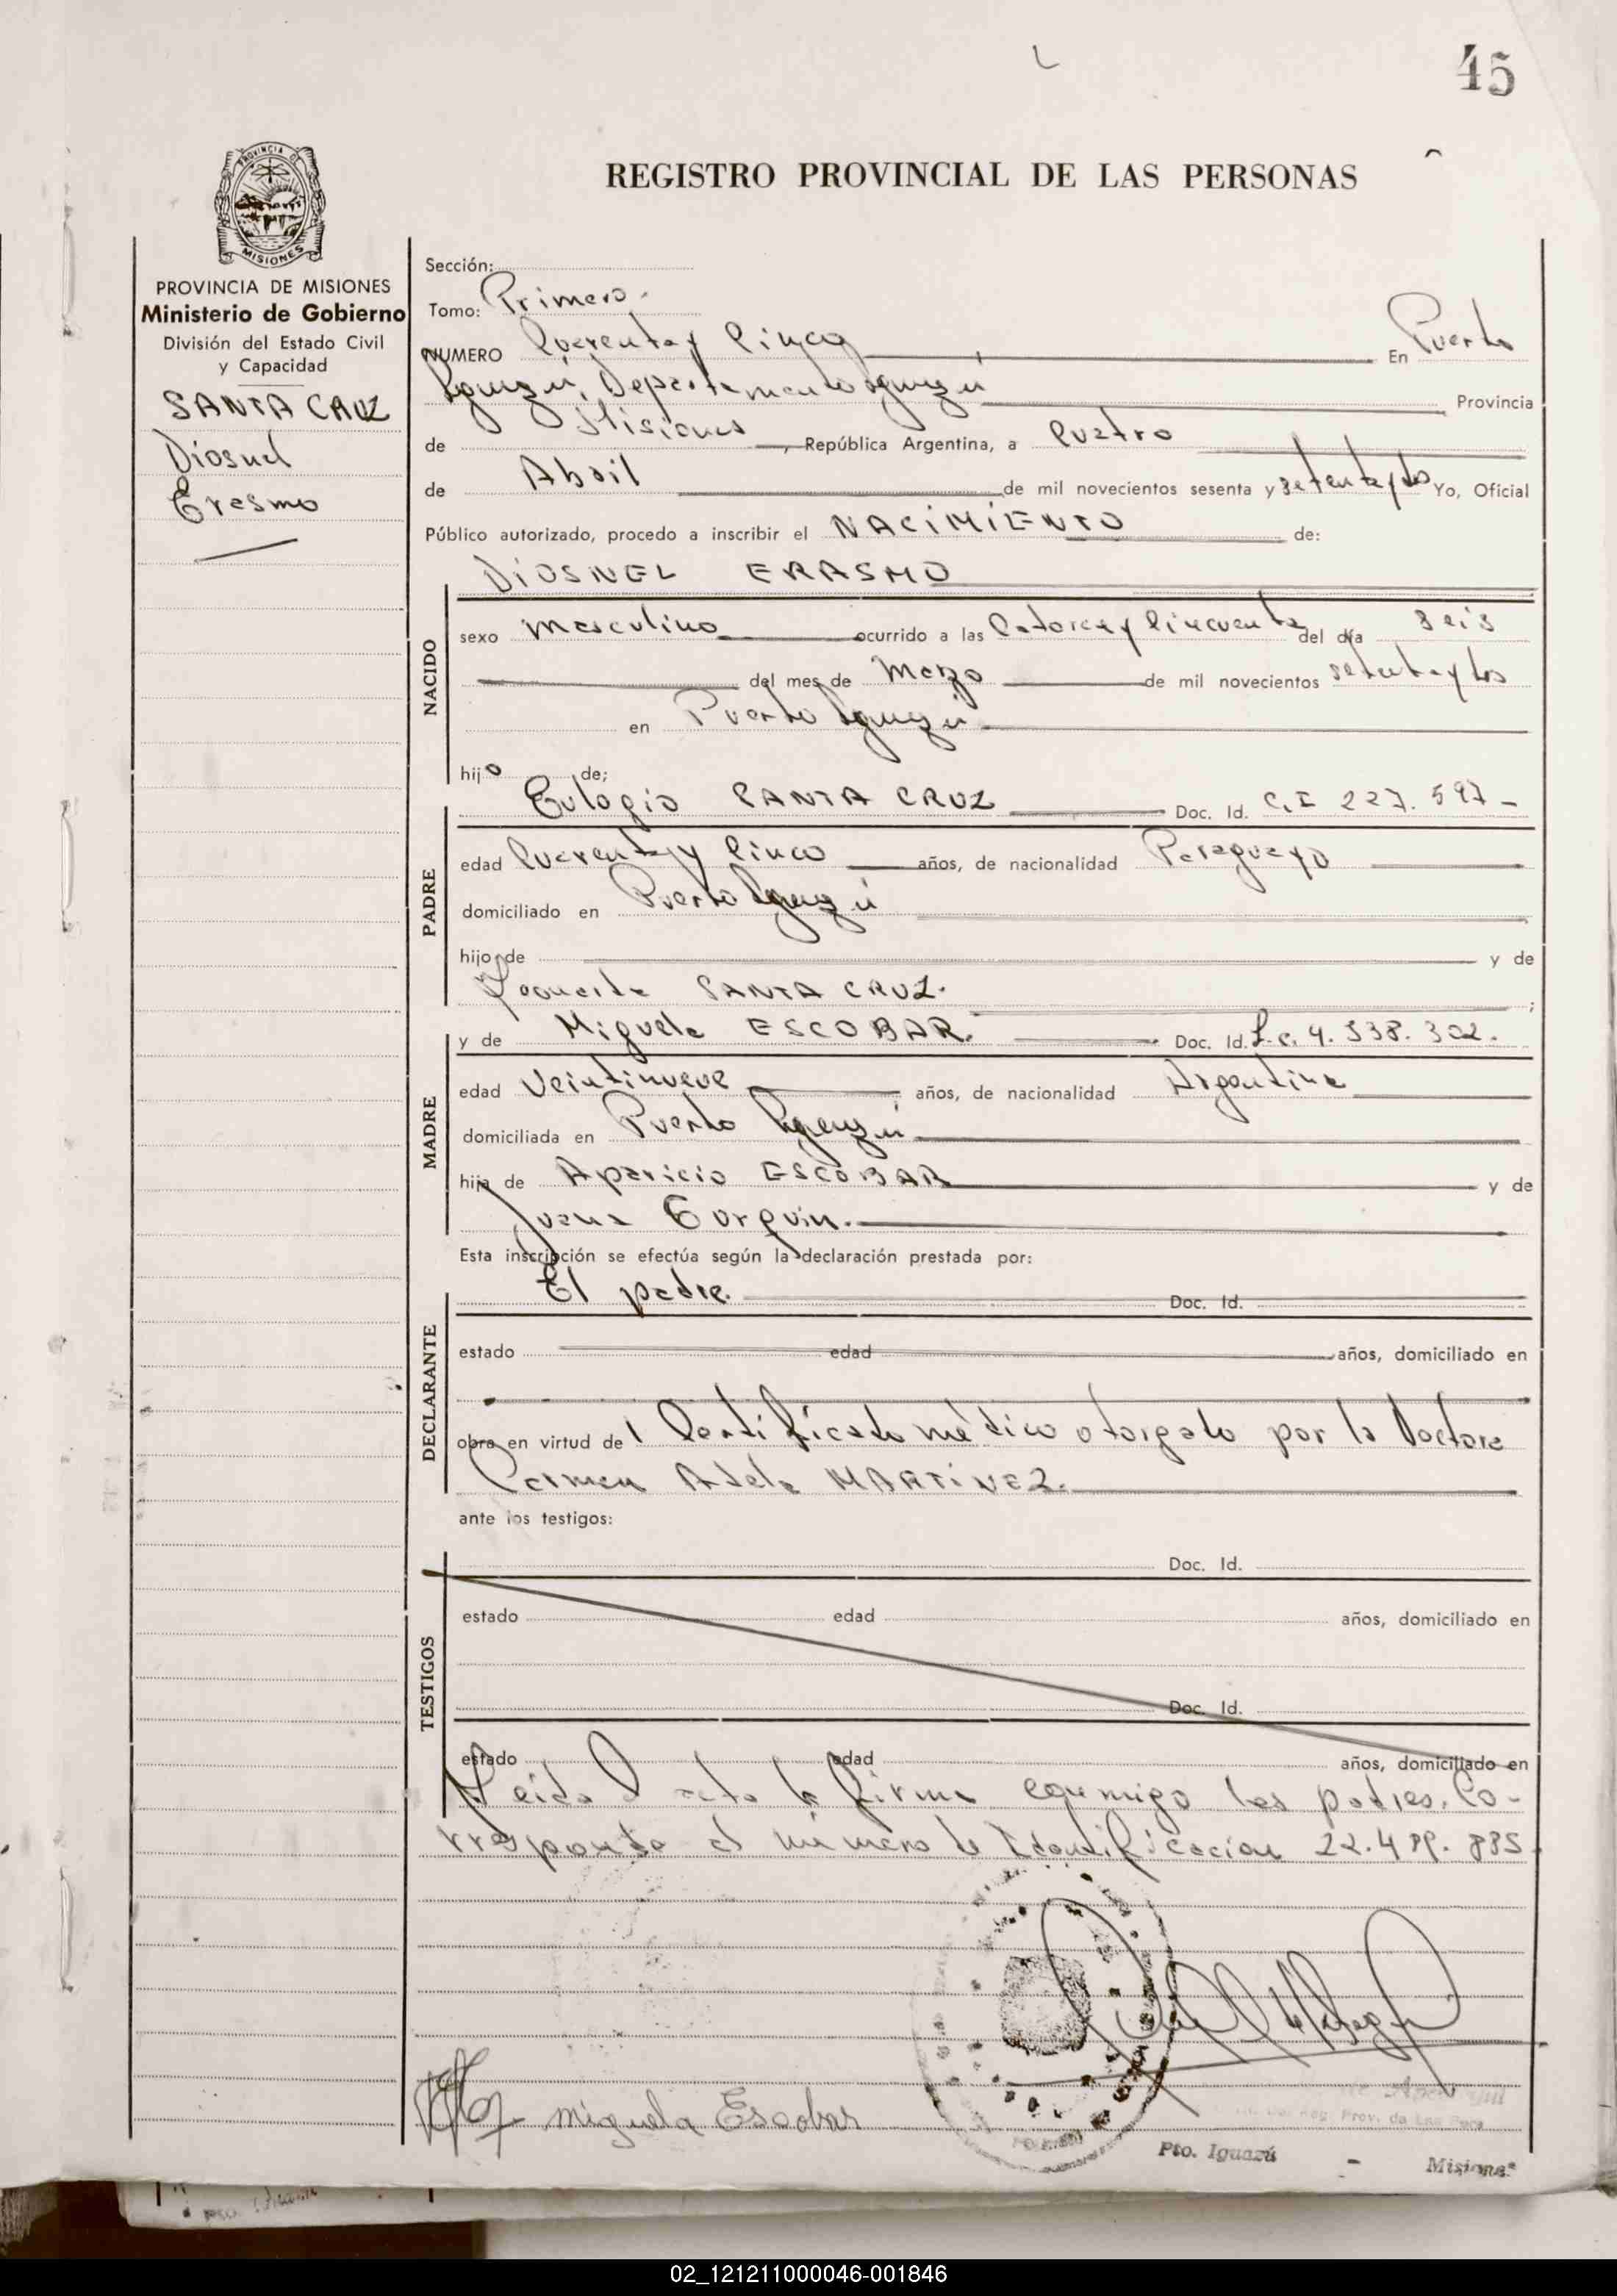 45
REGISTRO PROVINCIAL DE LAS PERSONAS
PROVINCIA DE MISIONES
PROVINCIA DE MISIONES
Ministerio de Gobierno
División del Estado Civil
y Capacidad
SANTA CRUZ
Diosnel
Erasmo
Sección:
Tomo: Primero.
NUMERO Cuarenta y Cinco En Puerto
Iguazú, Departamento Iguazú Provincia
de Misiones, República Argentina, a Cuatro
de Abril de mil novecientos sesenta y setenta y dos Yo, Oficial
Público autorizado, procedo a inscribir el NACIMIENTO de:
DIOSNEL ERASMO
NACIDO
sexo Masculino ocurrido a las Catorce y Cincuenta del día seis
del mes de Marzo de mil novecientos setenta y dos
en Puerto Iguazú
hijo de;
Eulogio SANTA CRUZ Doc. Id. C.I 227. 597 -
PADRE
edad Cuarenta y Cinco años, de nacionalidad Paraguayo
domiciliado en Puerto Iguazú
hijo de y de
SANTA CRUZ.
y de Miguela ESCOBAR. Doc. Id. L.C. 4. 538. 302.
MADRE
edad Veintinueve años, de nacionalidad Argentina
domiciliada en Puerto Iguazú
hija de Aparicio ESCOBAR y de
Juana
Esta inscripción se efectúa según la declaración prestada por:
El padre. Doc. Id.
DECLARANTE
estado edad años, domiciliado en
obra en virtud de Certificado médico otorgado por la Doctora
Carmen Adela MARTINEZ.
ante los testigos:
Doc. Id.
TESTIGOS
estado edad años, domiciliado en
Doc. Id.
estado edad años, domiciliado en
Leida el acta la firman conmigo los padres. Co-
rresponde el número de Identificación 22.489. 885
Miguela Escobar
Reg. Prov. de Las Pers.
Pto. Iguazú - Misiones
02_121211000046-001846